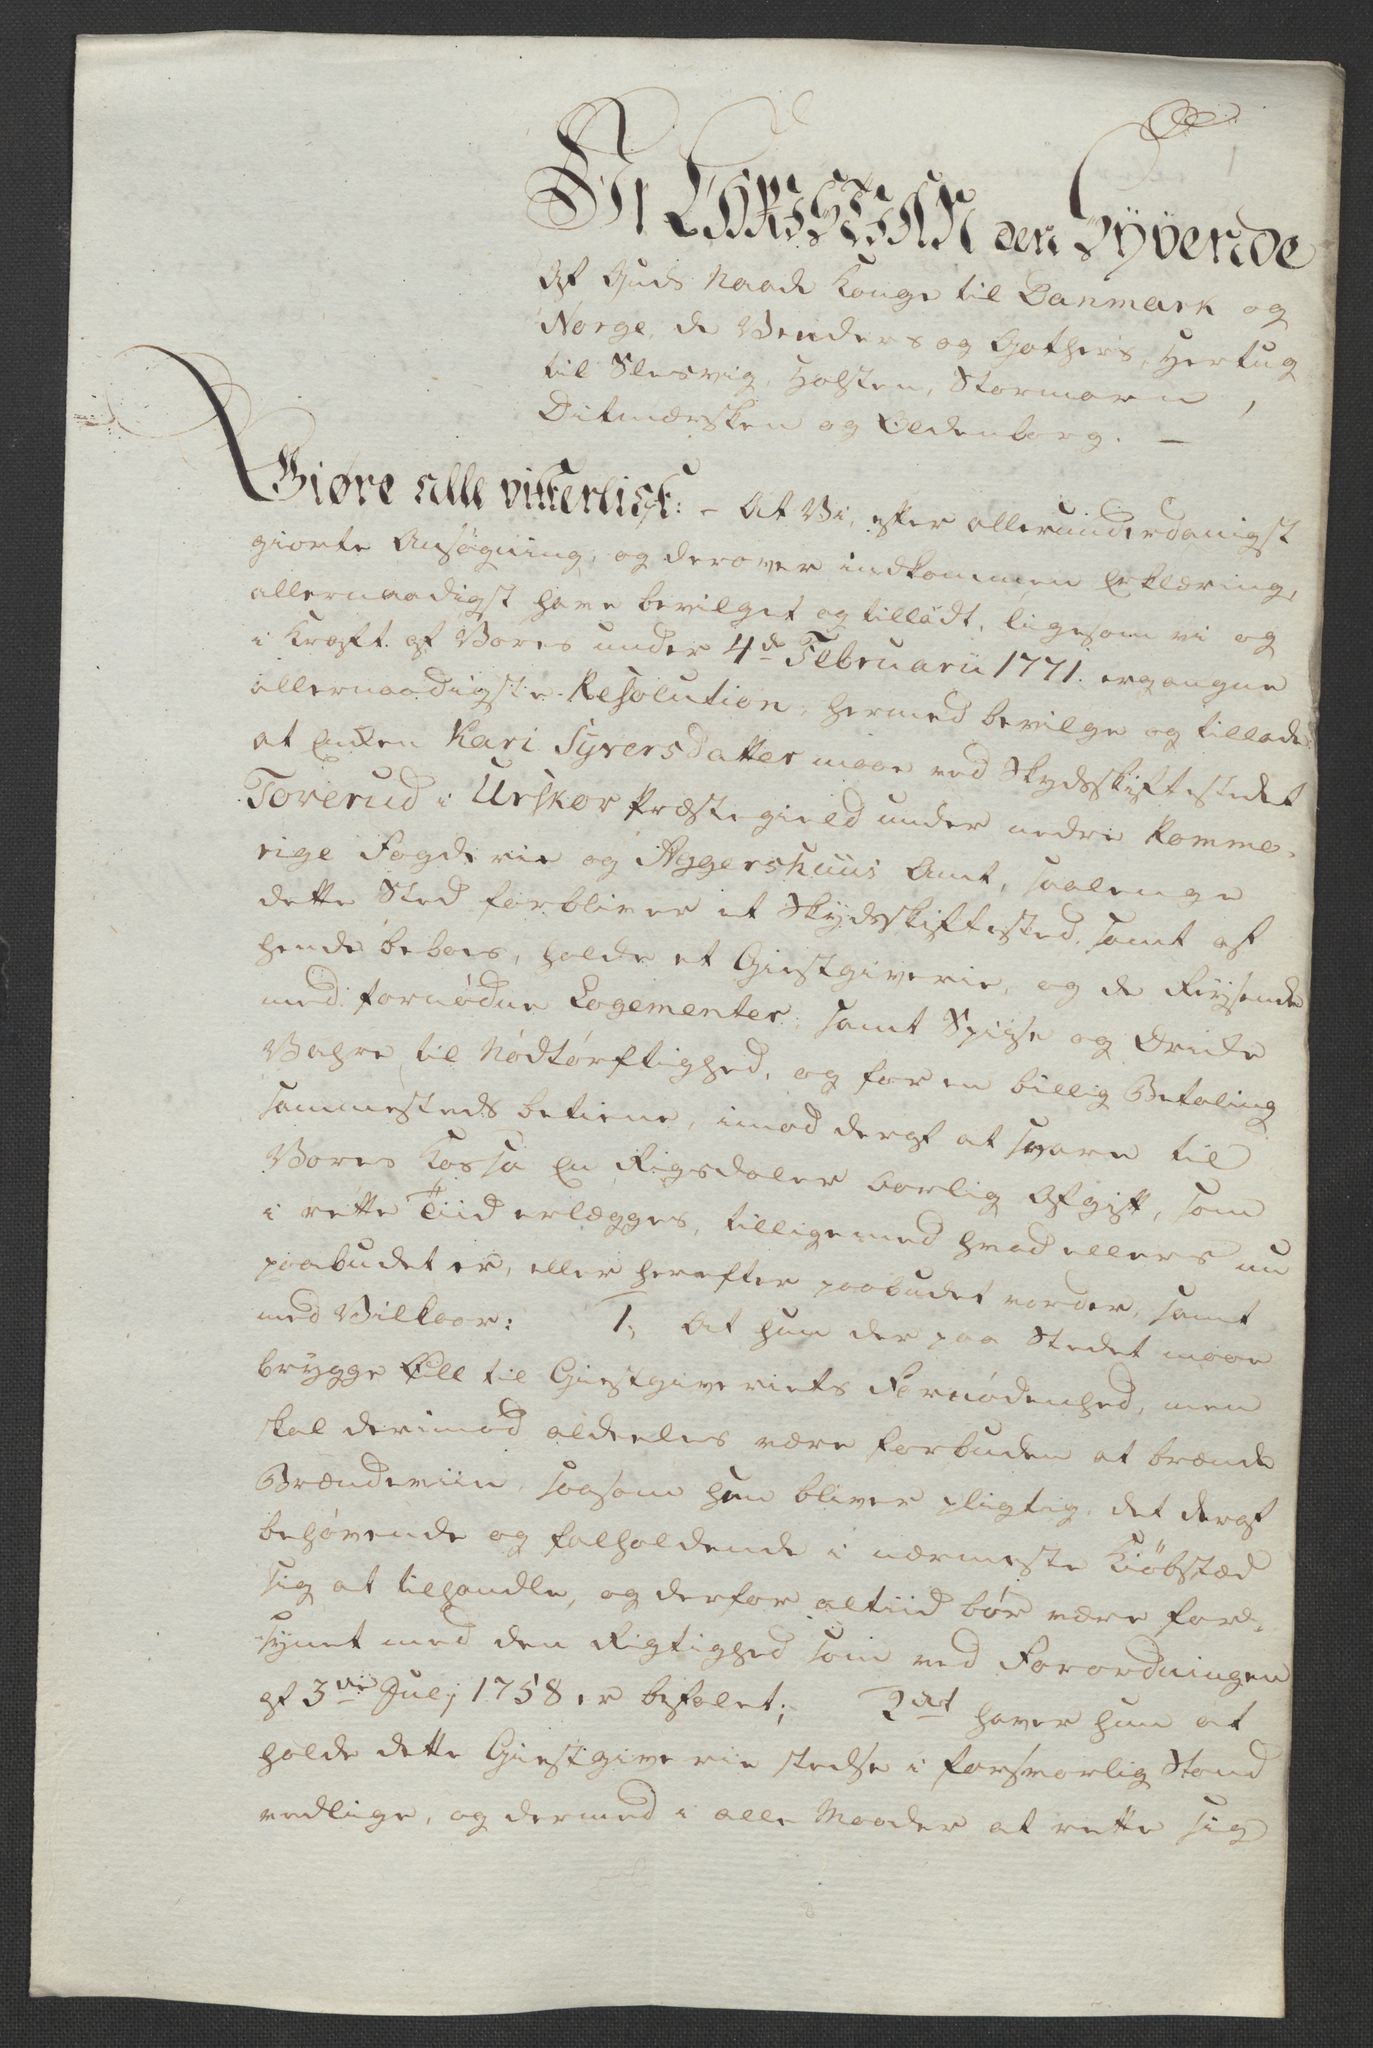 Vi CHRISTIAN den Syvende
Af Guds Naade Konge til Danmark og
Norge, de Venders og Gothers, Hertug
til Slesvig, Holsten, Stormarn,
Ditmersken og Oldenborg. —
Giøre alle vitterligt: – At Vi, efter allerunderdanigst
giorte Ansøgning, og derover indkommen Erklæring,
allernaadigst have bevilget og tilladt, ligesom vi og
i Kraft af Vores under 4de Februarii 1771. ergangne
allernaadigste Resolution, hermed bevilge og tillade
at Enken Kari Syversdatter maae ved Skydsskiftestedet
Torerud i Urskor Præstegield under nedre Romme-
rige Fogderie og Aggershuus Amt, saalenge
dette Sted forbliver et Skydsskiftested, samt af
hende beboes, holde et Giestgiverie, og de Reysende
med fornødne Logementer, samt Spiise og Drikke
Vahre til Nødtørftighed, og for en billig Betaling
sammesteds betiene, imod deraf at svare til
Vores Kassa En Rigsdaler aarlig Afgift, som
i rette Tiid erlægges, tilligemed hvad ellers nu
paabudet er, eller herefter paabudet vorder, samt
med Vilkaar: 1, At hun der paa Stedet maae
brygge Øll til Giestgiveriets Fornødenhed, men
skal derimod aldeeles være forbuden at brænde
Brændeviin, saasom hun bliver pligtig, det deraf
behøvende og falholdende i nærmeste Kiøbstæd
sig at tilhandle, og derfor altiid bør være for-
synet med den Rigtighed som ved Forordningen
af 3die Julj 1758 er befalet; 2det haver hun at
holde dette Giestgiverie stedse i forsvarlig Stand
vedlige, og dermed i alle Maader at rette sig